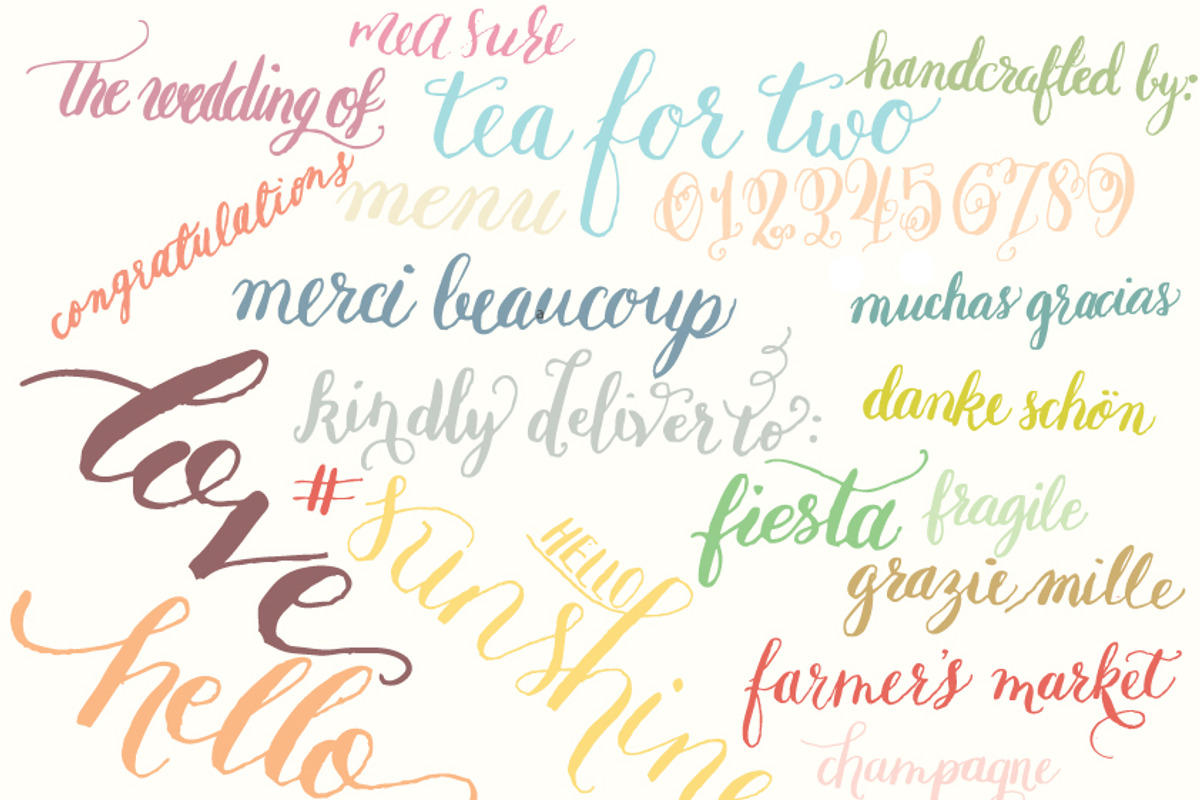 measure
The wedding of
tea for two
handcrafted by:
congratulations
menu
0123456789
merci beaucoup
a
muchas gracias
kindly deliver to:
danke schön
love
#sunshine
HELLO
fiesta
fragile
grazie mille
hello
farmer's market
champagne